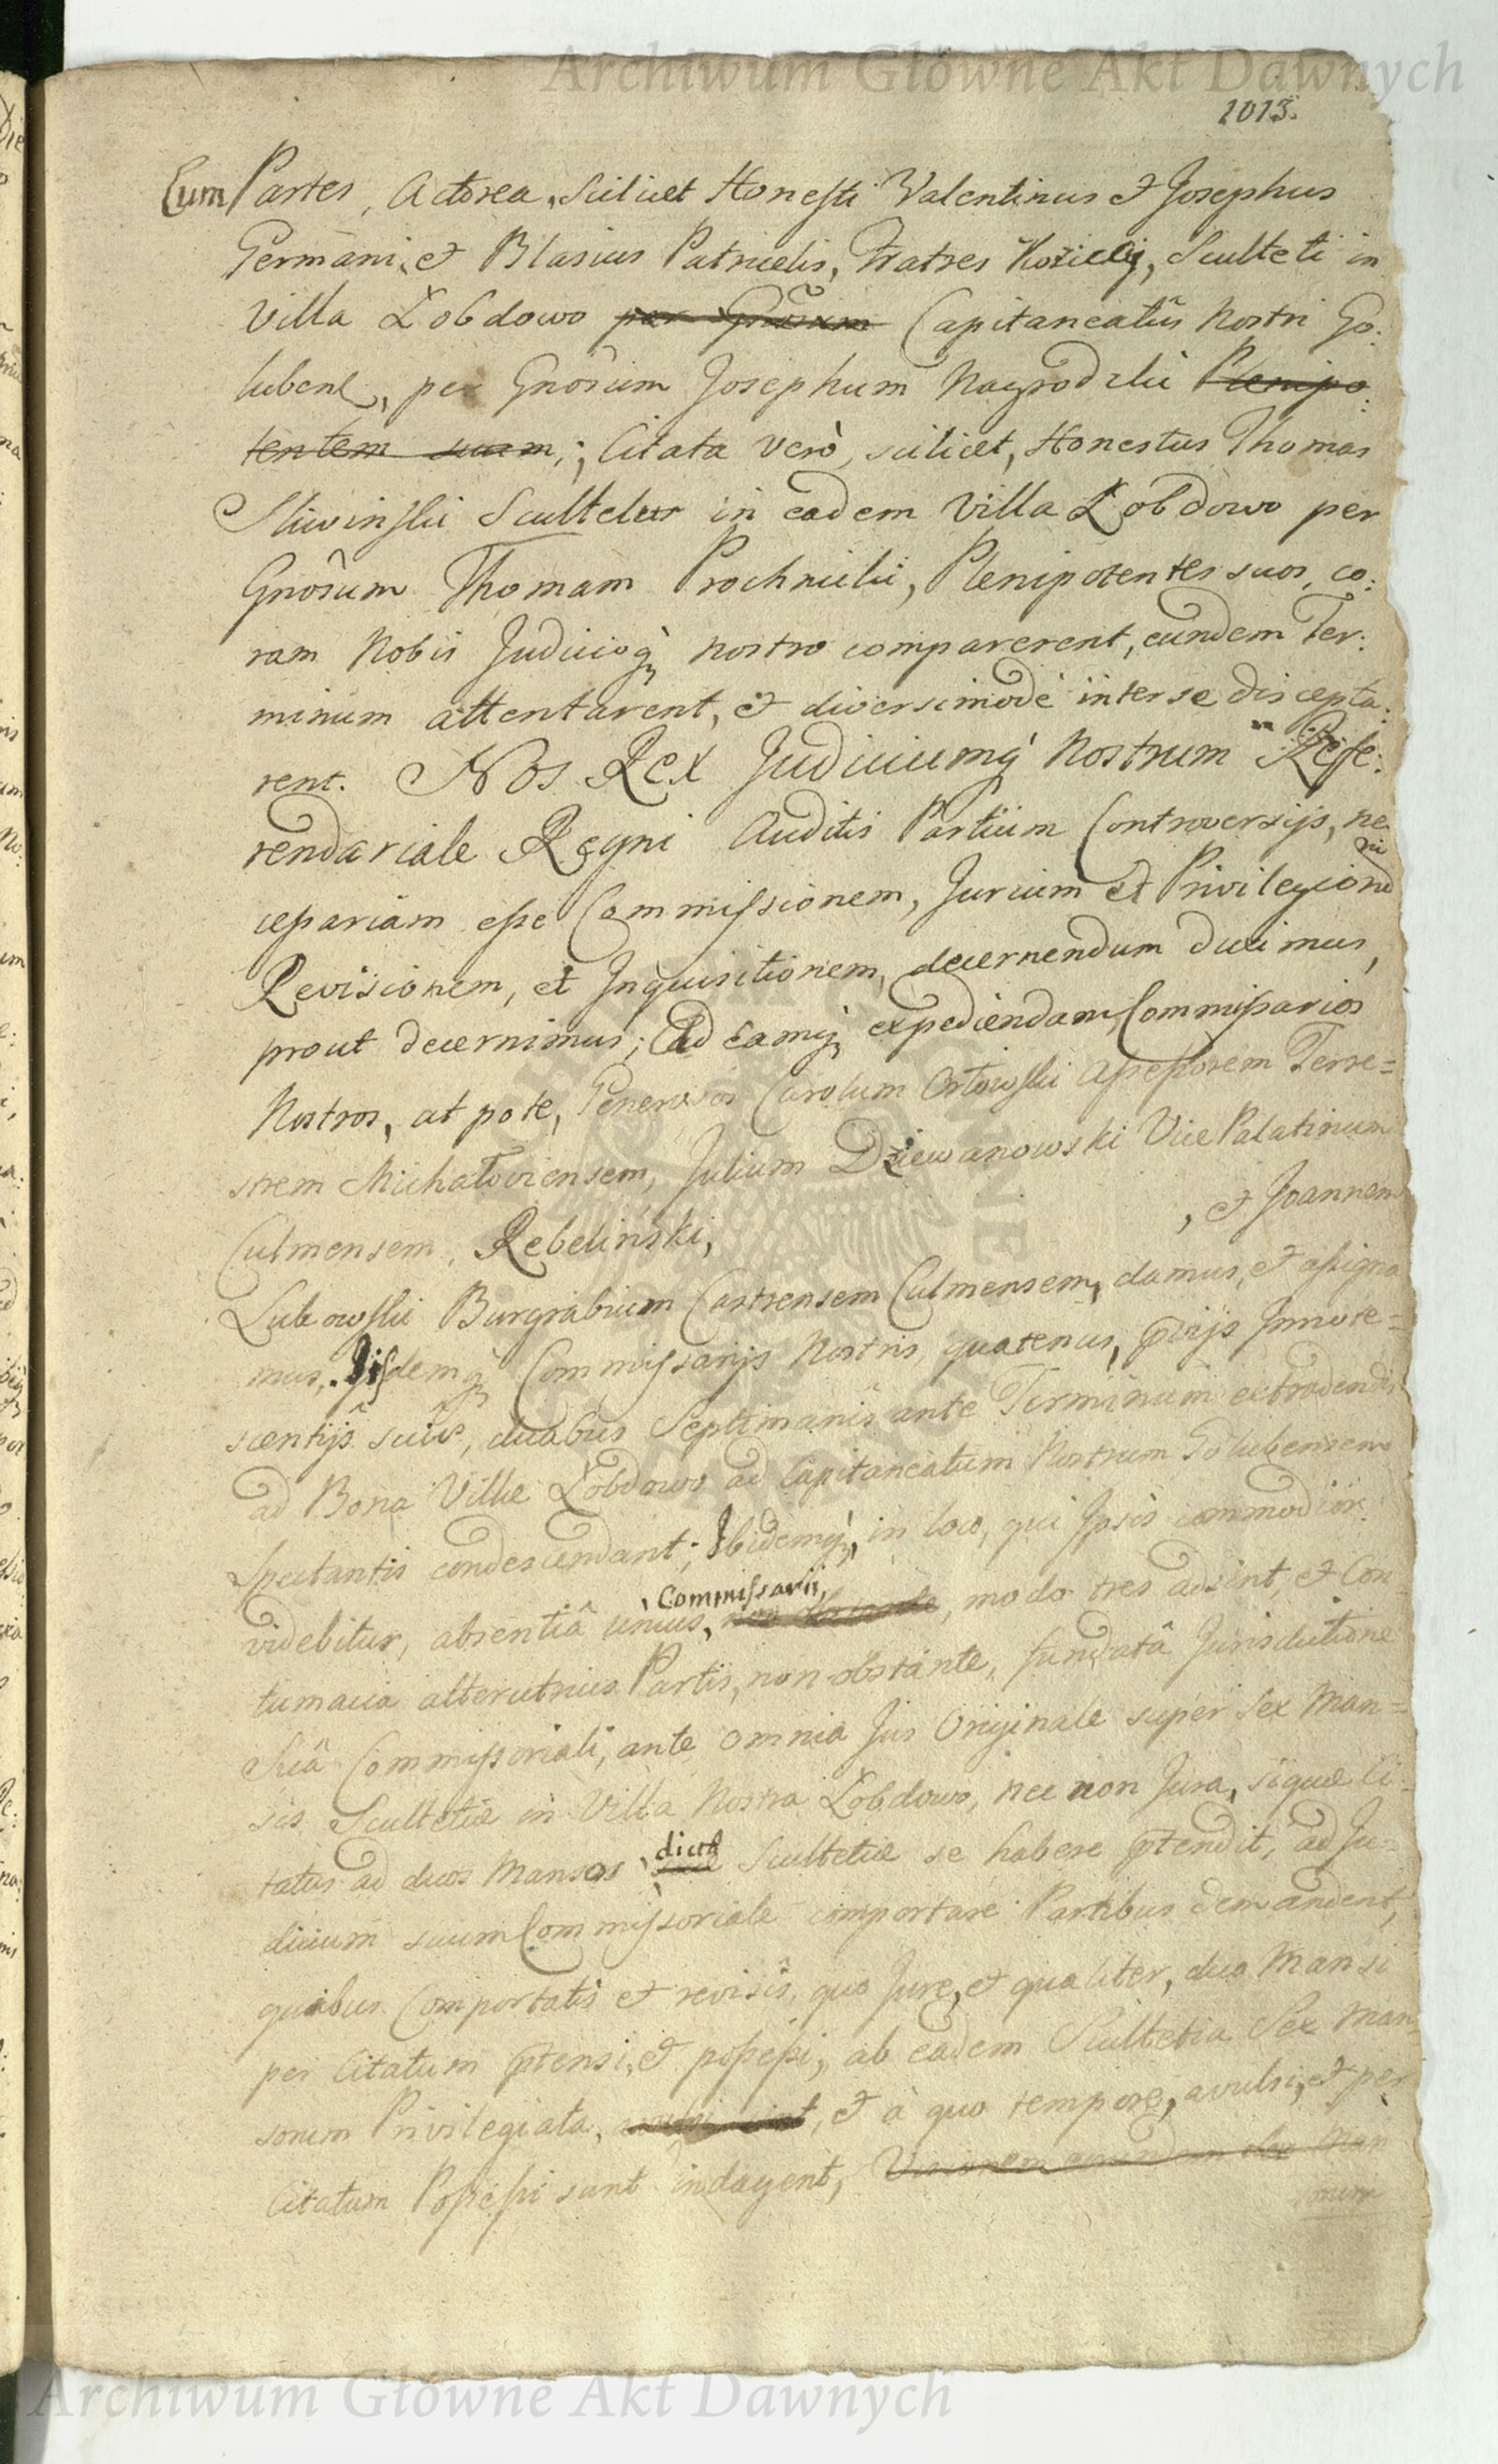 Archiwum Główne Akt Dawnych
1013.
Cum Partes, Actorea, scilicet Honesti Valentinus et Josephus
Germani, et Blasius Patruelis, Fratres Koziccy, Sculteti in
Villa Łobdowo per Gnõsum Capitaneatûs Nostri Go:
lubens, per Gnõsum Josephum Nagrodzki Plenipo:
tentem suum; Citata verò, scilicet, Honestus Thomas
Sliwinski Scultetus in eadem Villa Łobdowo per
Gnõsum Thomam Prochnicki, Plenipotentes suos, co:
ram Nobis Judicioq̀ nostro comparerent, eundem Ter:
minum attentarent, et diversimodè inter se discepta:
rent. Nos Rex Judiciumq̀ Nostrum Refe:
rendariale Regni Auditis Partium Controversijs, ne
cessariam esse Commissionem, Jurium et Privilegiorũ
Revisionem, et Inquisitionem, decernendum duximus,
prout decernimus; Ad Eamq̀ expediendam, Commissarios
Nostros, ut pote, Generosos Carolum Orłowski Assessorem Terre=
strem Michałoviensem, Julium Dziewanowski Vice Palatinum
Culmensem, Rebeliński, , et Joannem
Lukowski Burgrabium Castrensem Culmensem, damus, et assigna
mus, Iisdemq̀ Commissarijs Nostris, quatenus, p̃vijs Innote=
scentijs suis, duabus Septimanis ante Terminum extradendis
ad Bona Villæ Łobdowo ad Capitaneatum Nostrum Golubensem
spectantis condescendant; Ibidemq̀, in loco, qui Ipsis commodior
videbitur, absentiâ unius, Commissarii, non obstante, modo tres adsint, et Con=
tumacia alterutrius Partis, non obstante, fundatâ Jurisdictione
suâ Commissoriali, ante omnia Jus Originale super Sex Man=
sis Scultetiæ in Villa Nostra Łobdowo, nec non Jura, siquæ Ci=
tatus ad duos Mansos suæ dictæ Scultetiæ se habere p̃tendit, ad Ju=
dicium suum Commissoriale comportare Partibus demandent,
quibus Comportatis et revisis, quo Jure, et qualiter, duo Mansi
per Citatum p̃tensi, et possessi, ab eadem Scultetia Sex Man=
sorum Privilegiata, avulsi sint, et à quo tempore, avulsi, et per
Citatum Possessi sunt indagent, eorundem duo Man
Archiwum Główne Akt Dawnych